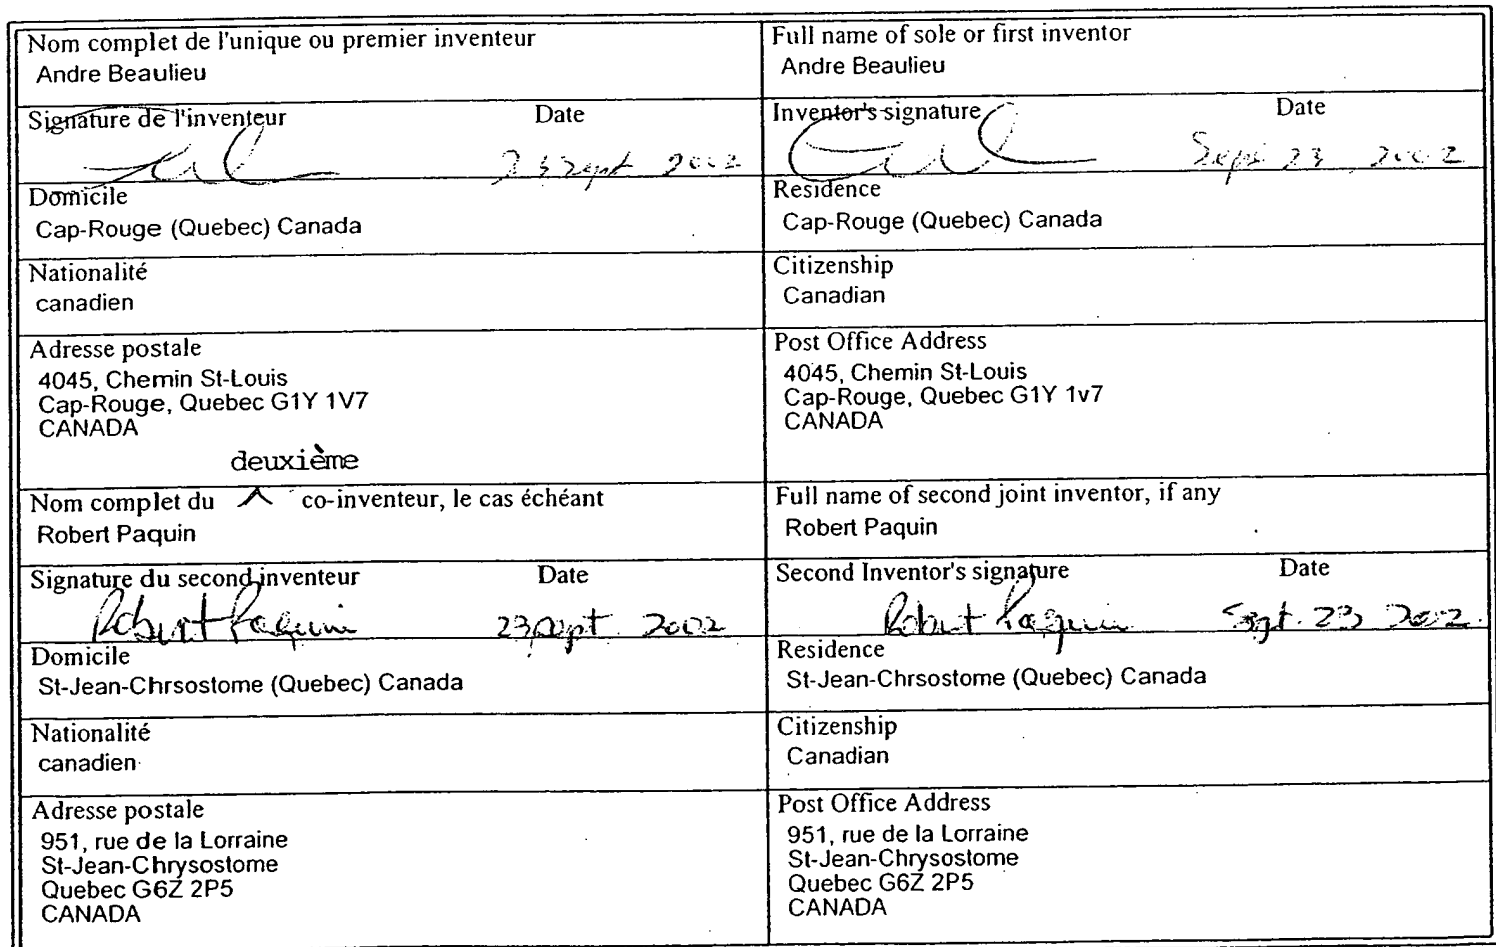 Nom complet de l'unique ou premier inventeur
Andre Beaulieu
Full name of sole or first inventor
Andre Beaulieu
Signature de l'inventeur Date
23 Sept 2002
Inventor's signature Date
Sept 23 2002
Domicile
Cap-Rouge (Quebec) Canada
Residence
Cap-Rouge (Quebec) Canada
Nationalité
canadien
Citizenship
Canadian
Adresse postale
4045, Chemin St-Louis
Cap-Rouge, Quebec G1Y 1V7
CANADA
Post Office Address
4045, Chemin St-Louis
Cap-Rouge, Quebec G1Y 1v7
CANADA
deuxième
Nom complet du ^ co-inventeur, le cas échéant
Robert Paquin
Full name of second joint inventor, if any
Robert Paquin
Signature du second inventeur Date
Robert Paquin 23 sept. 2002
Second Inventor's signature Date
Robert Paquin Sept. 23 2002.
Domicile
St-Jean-Chrsostome (Quebec) Canada
Residence
St-Jean-Chrsostome (Quebec) Canada
Nationalité
canadien
Citizenship
Canadian
Adresse postale
951, rue de la Lorraine
St-Jean-Chrysostome
Quebec G6Z 2P5
CANADA
Post Office Address
951, rue de la Lorraine
St-Jean-Chrysostome
Quebec G6Z 2P5
CANADA